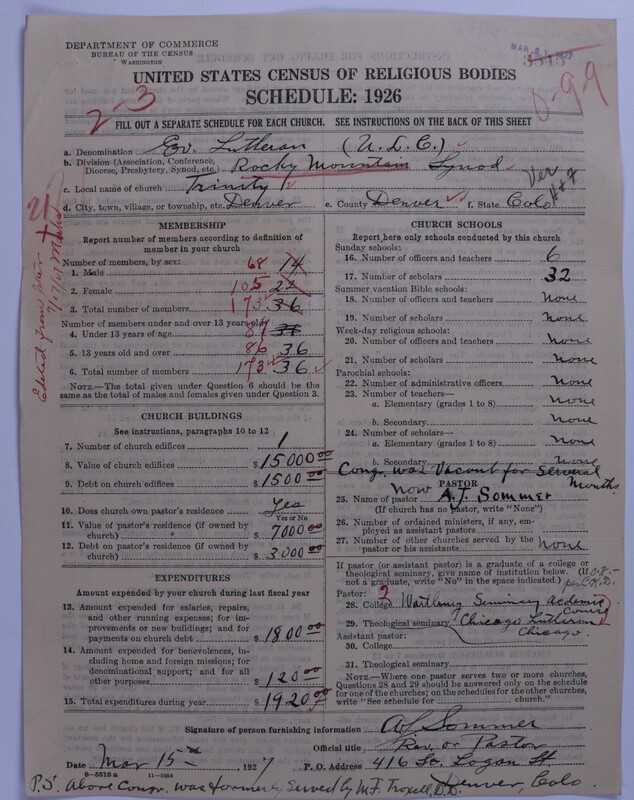 DEPARTMENT OF COMMERCE
BUREAU OF THE CENSUS
WASHINGTON
MAR 21 1927
3545
UNITED STATES CENSUS OF RELIGIOUS BODIES
SCHEDULE: 1926
2-3
0-99
FILL OUT A SEPARATE SCHEDULE FOR EACH CHURCH. SEE INSTRUCTIONS ON THE BACK OF THIS SHEET
a. Denomination Ev. Lutheran (U.L.C.)
b. Division (Association, Conference, Diocese, Presbytery, Synod, etc.) Rocky Mountain Synod
c. Local name of church Trinity
d. City, town, village, or township, etc. Denver e. County Denver f. State Colo
Ver
MEMBERSHIP
Report number of members according to definition of member in your church
Number of members, by sex:
1. Male 68 14
2. Female 105 22
3. Total number of members 173 36
Number of members under and over 13 years old:
4. Under 13 years of age 87
5. 13 years old and over 86 36
6. Total number of members 173 36
NOTE.—The total given under Question 6 should be the same as the total of males and females given under Question 3.
CHURCH BUILDINGS
See instructions, paragraphs 10 to 12
7. Number of church edifices 1
8. Value of church edifices $15000.00
9. Debt on church edifices $1500.00
10. Does church own pastor's residence? Yes
Yes or No
11. Value of pastor's residence (if owned by church) $7000.00
12. Debt on pastor's residence (if owned by church) $3000.00
EXPENDITURES
Amount expended by your church during last fiscal year
13. Amount expended for salaries, repairs, and other running expenses; for improvements or new buildings; and for payments on church debt $1800.00
14. Amount expended for benevolences, including home and foreign missions; for denominational support; and for all other purposes $120.00
15. Total expenditures during year $1920.00
CHURCH SCHOOLS
Report here only schools conducted by this church
Sunday schools:
16. Number of officers and teachers 6
17. Number of scholars 32
Summer vacation Bible schools:
18. Number of officers and teachers None
19. Number of scholars None
Week-day religious schools:
20. Number of officers and teachers None
21. Number of scholars None
Parochial schools:
22. Number of administrative officers None
23. Number of teachers—
a. Elementary (grades 1 to 8) None
b. Secondary None
24. Number of scholars—
a. Elementary (grades 1 to 8) None
b. Secondary None
Cong. was Vacant for Several Months.
PASTOR
25. Name of pastor Now A.J. Sommer
(If church has no pastor, write "None")
26. Number of ordained ministers, if any, employed as assistant pastors
27. Number of other churches served by the pastor or his assistants None
If pastor (or assistant pastor) is a graduate of a college or theological seminary, give name of institution below. (If not a graduate, write "No" in the space indicated.)
Pastor: 2
28. College Wartburg Seminary Academic Course
29. Theological seminary Chicago Lutheran Chicago.
Assistant pastor:
30. College
31. Theological seminary
NOTE.—Where one pastor serves two or more churches, Questions 28 and 29 should be answered only on the schedule for one of the churches; on the schedules for the other churches, write "See schedule for church."
Signature of person furnishing information AJ Sommer
Official title Rev. or Pastor
Date Mar 15th, 1927 P. O. Address 416 So. Logan St.
8—5518a 11—9184
Denver, Colo.
P.S. Above Congr. was formerly Served by M.F. Troxell, D.D.